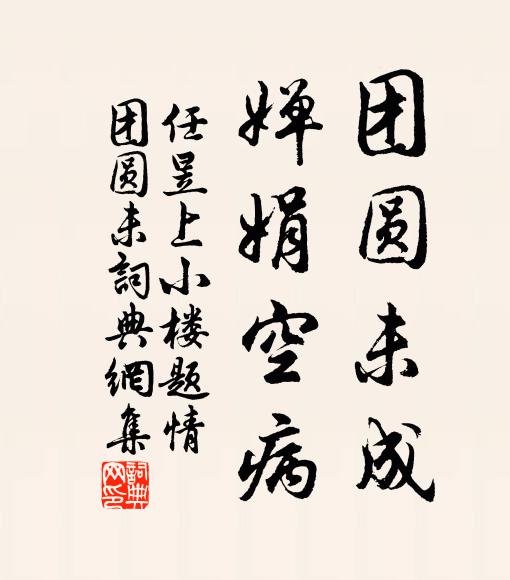 团圆未成
婵娟空病
任昱上小楼题情
团圆未詞典網集
詞典
网印